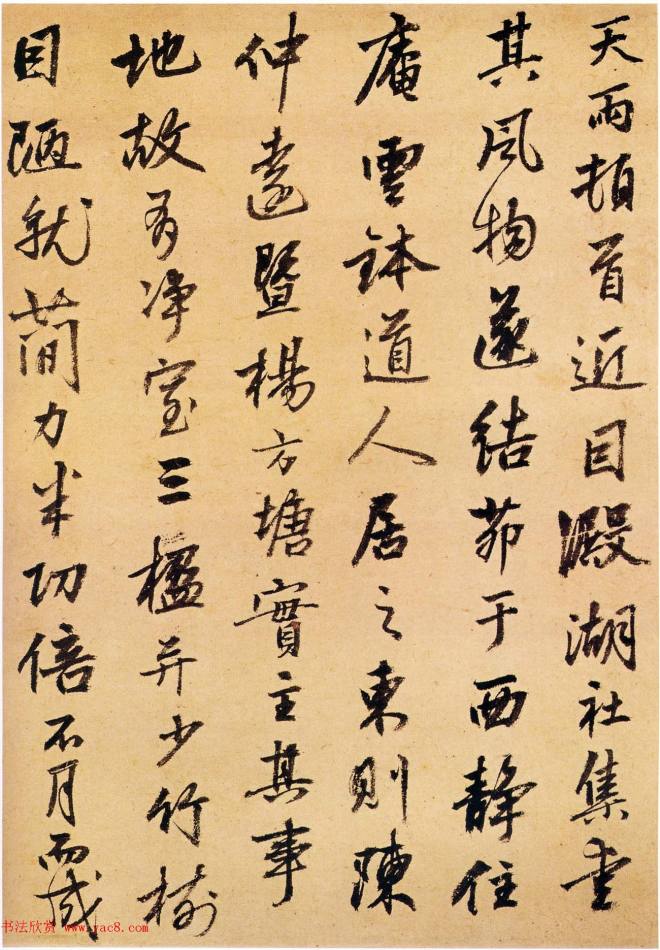 天雨頓首近因澱湖社集愛
其風物遂結茆于西靜住
庵雲鉢道人居之東則陳
仲遠暨楊方塘實主其事
地故有净室三楹并少竹樹
因陋就簡力半功倍不月而成
书法欣赏 www.yac8.com